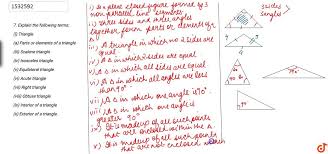 1532592
7. Explain the following terms:
(i) Triangle
(ii) Parts or elements of a triangle
(iii) Scalene triangle
(iv) Isosceles triangle
(v) Equilateral triangle
(vi) Acute triangle
(vii) Right triangle
(viii) Obtuse triangle
(ix) Interior of a triangle
(x) Exterior of a triangle
i) is a plane closed figure formed by 3
non parallel line segments
ii) three sides and three angles
together form parts or elements of a
Δ
iii) A triangle in which no 2 sides are
equal
iv) A Δ in which 2 sides are equal
v) A Δ in which all sides are equal
vi) A Δ in which all angles are less
than 90°
vii) A Δ in which one angle is 90°
viii) A Δ in which one angle is
greater 90°
ix) It is made up of all such points
that are enclosed within the Δ
x) It is made up of all such points
that are not enclosed within
3 sides
3 angles
90°